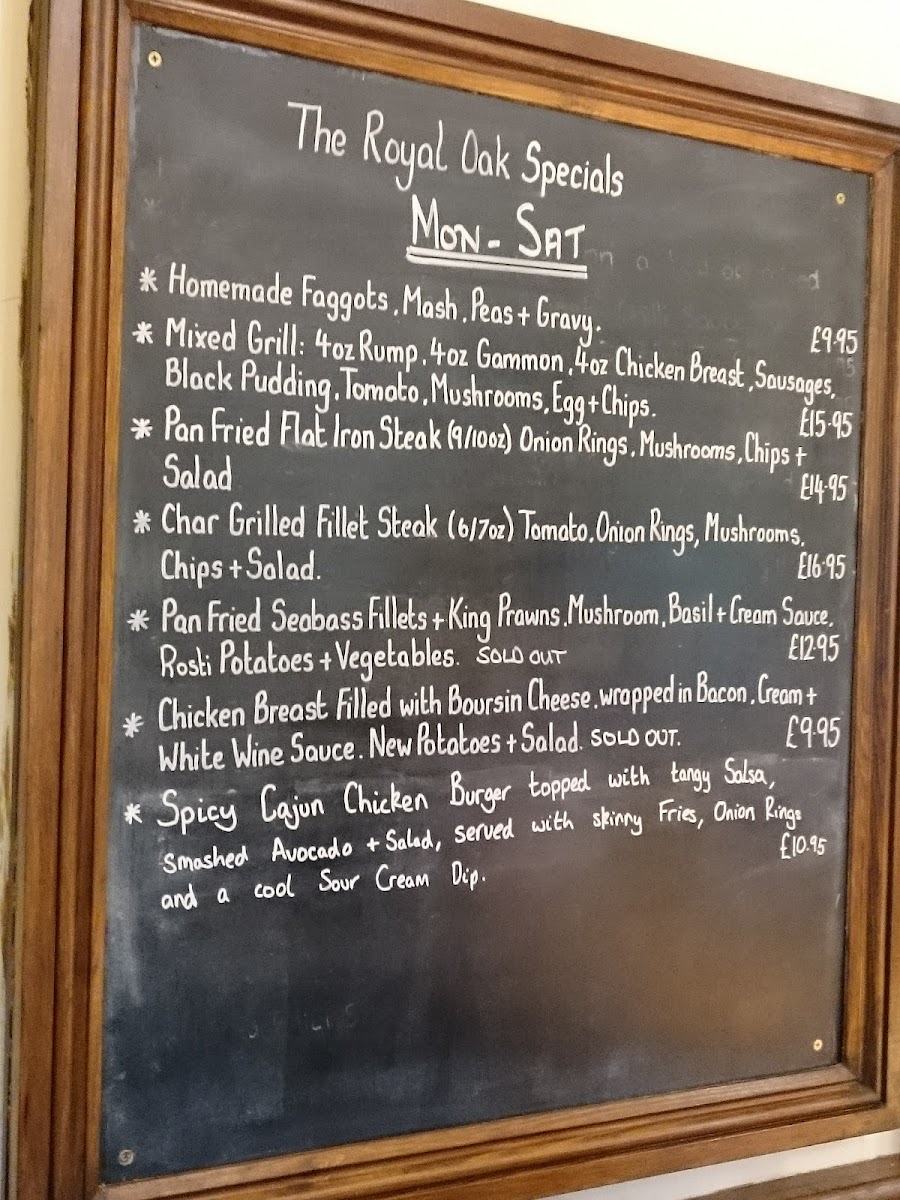 The Royal Oak Specials
MON - SAT
* Homemade Faggots, Mash, Peas + Gravy. £9.95
* Mixed Grill: 4oz Rump, 4oz Gammon, 4oz Chicken Breast, Sausages,
Black Pudding, Tomato, Mushrooms, Egg + Chips. £15.95
* Pan Fried Flat Iron Steak (9/10oz) Onion Rings, Mushrooms, Chips +
Salad £14.95
* Char Grilled Fillet Steak (6/7oz) Tomato, Onion Rings, Mushrooms,
Chips + Salad. £16.95
* Pan Fried Seabass Fillets + King Prawns, Mushroom, Basil + Cream Sauce,
Rosti Potatoes + Vegetables. SOLD OUT £12.95
* Chicken Breast Filled with Boursin Cheese, wrapped in Bacon, Cream +
White Wine Sauce. New Potatoes + Salad. SOLD OUT. £9.95
* Spicy Cajun Chicken Burger topped with tangy Salsa,
Smashed Avocado + Salad, served with skinny Fries, Onion Rings
and a cool Sour Cream Dip. £10.95